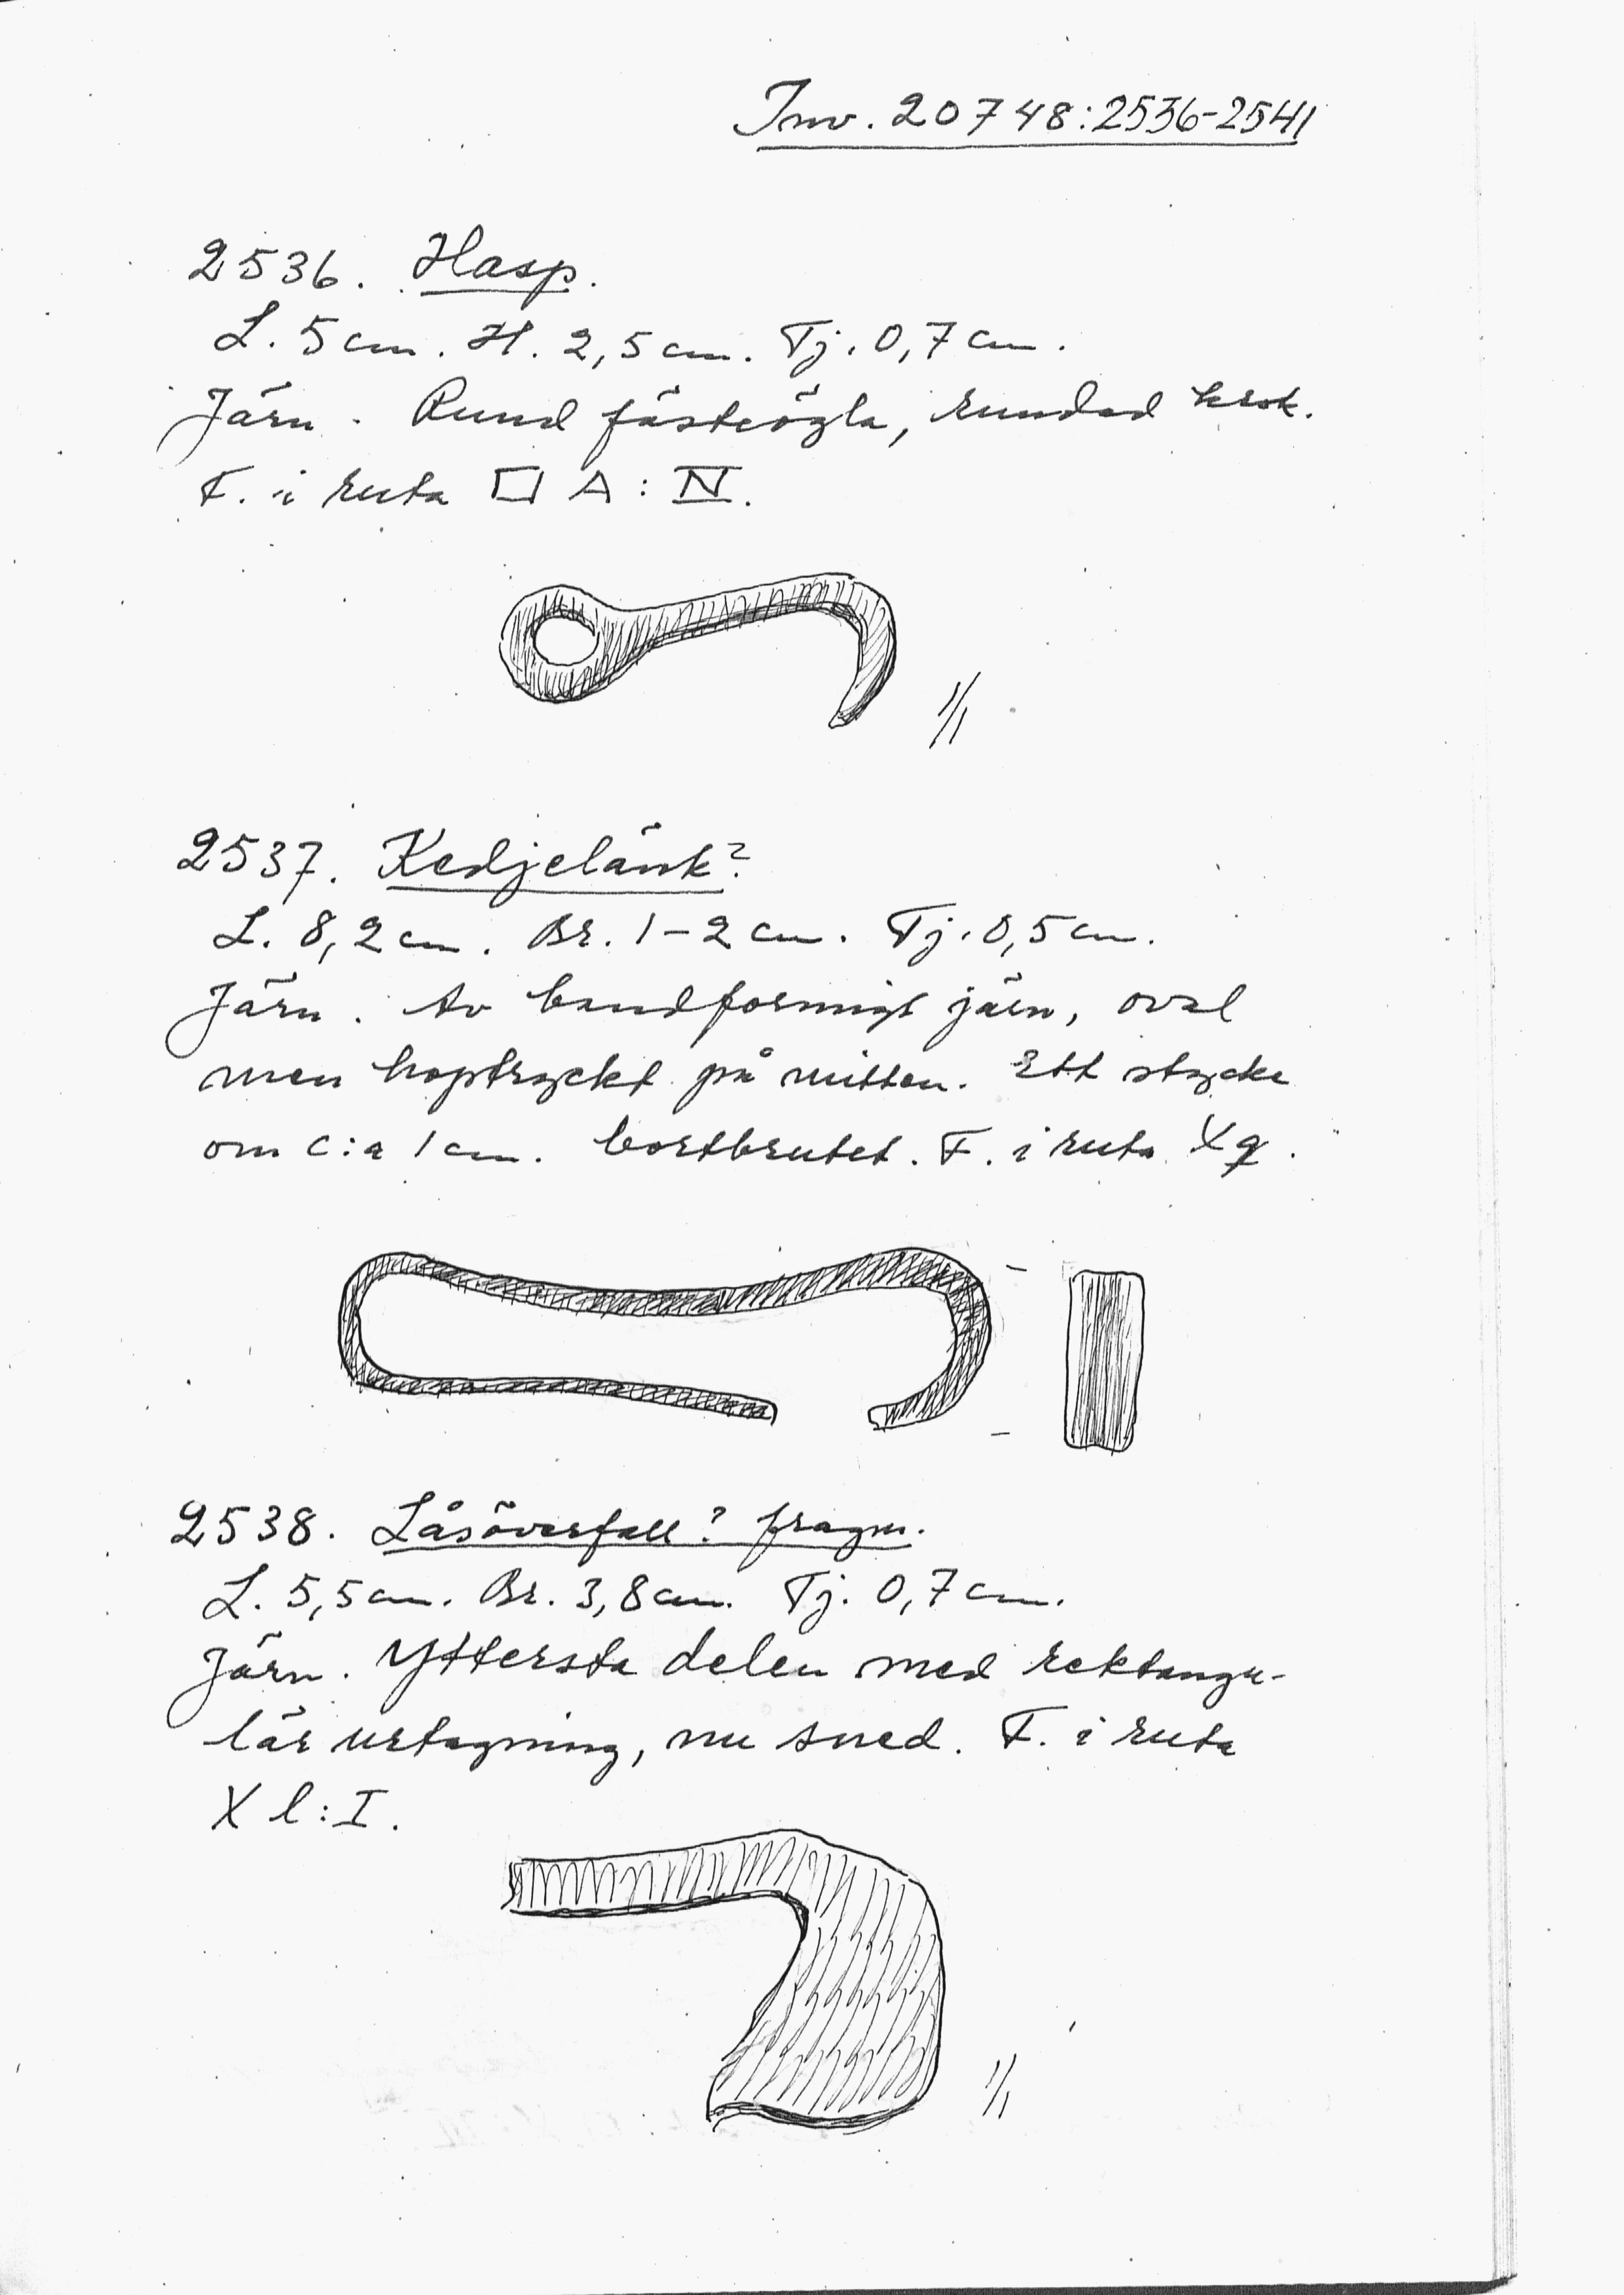 Inv. 20748:2536-2541
2536. Hasp.
L. 5 cm. H. 2,5 cm. Tj. 0,7 cm.
Järn. Rund fästeögla, rundad krok.
F. i ruta □ A: IV.
1/1
2537. Kedjelänk?
L. 8,2 cm. Br. 1-2 cm. Tj. 0,5 cm.
Järn. Av bandformigt järn, oval
men hoptryckt på mitten. Ett stycke
om c:a 1 cm. bortbrutet. F. i ruta Xq.
2538. Låsöverfall? fragm.
L. 5,5 cm. Br. 3,8 cm. Tj. 0,7 cm.
Järn. Yttersta delen med rektangu-
lär urtagning, nu sned. F. i ruta
X l:I.
1/1